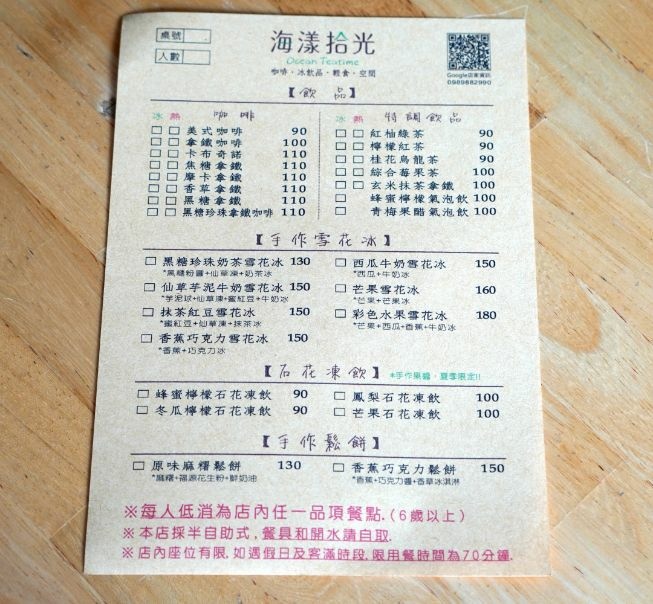 桌號
人數
海漾拾光
Ocean Teatime
咖啡·冰飲品·輕食·空間
Google店家資訊
0989882990
【飲 品】
冰 熱 咖 啡
美式咖啡 90
拿鐵咖啡 100
卡布奇諾 110
焦糖拿鐵 110
摩卡拿鐵 110
香草拿鐵 110
黑糖拿鐵 110
黑糖珍珠拿鐵咖啡 110
冰 熱 特調飲品
紅柚綠茶 90
檸檬紅茶 90
桂花烏龍茶 90
綜合莓果茶 100
玄米抹茶拿鐵 100
蜂蜜檸檬氣泡飲 100
青梅果醋氣泡飲 100
【手作雪花冰】
黑糖珍珠奶茶雪花冰 130
*黑糖粉圓+仙草凍+奶茶冰
仙草芋泥牛奶雪花冰 150
*芋泥球+仙草凍+蜜紅豆+牛奶冰
抹茶紅豆雪花冰 150
*蜜紅豆+仙草凍+抹茶冰
香蕉巧克力雪花冰 150
*香蕉+巧克力冰
西瓜牛奶雪花冰 150
*西瓜+牛奶冰
芒果雪花冰 160
*芒果+芒果冰
彩色水果雪花冰 180
*芒果+西瓜+香蕉+牛奶冰
【石花凍飲】 *手作果醬，夏季限定!!
蜂蜜檸檬石花凍飲 90
冬瓜檸檬石花凍飲 90
鳳梨石花凍飲 100
芒果石花凍飲 100
【手作鬆餅】
原味麻糬鬆餅 130
*麻糬+福源花生粉+鮮奶油
香蕉巧克力鬆餅 150
*香蕉+巧克力醬+香草冰淇淋
※每人低消為店內任一品項餐點.(6歲以上)
※本店採半自助式,餐具和開水請自取.
※店內座位有限,如遇假日及客滿時段,限用餐時間為70分鐘.